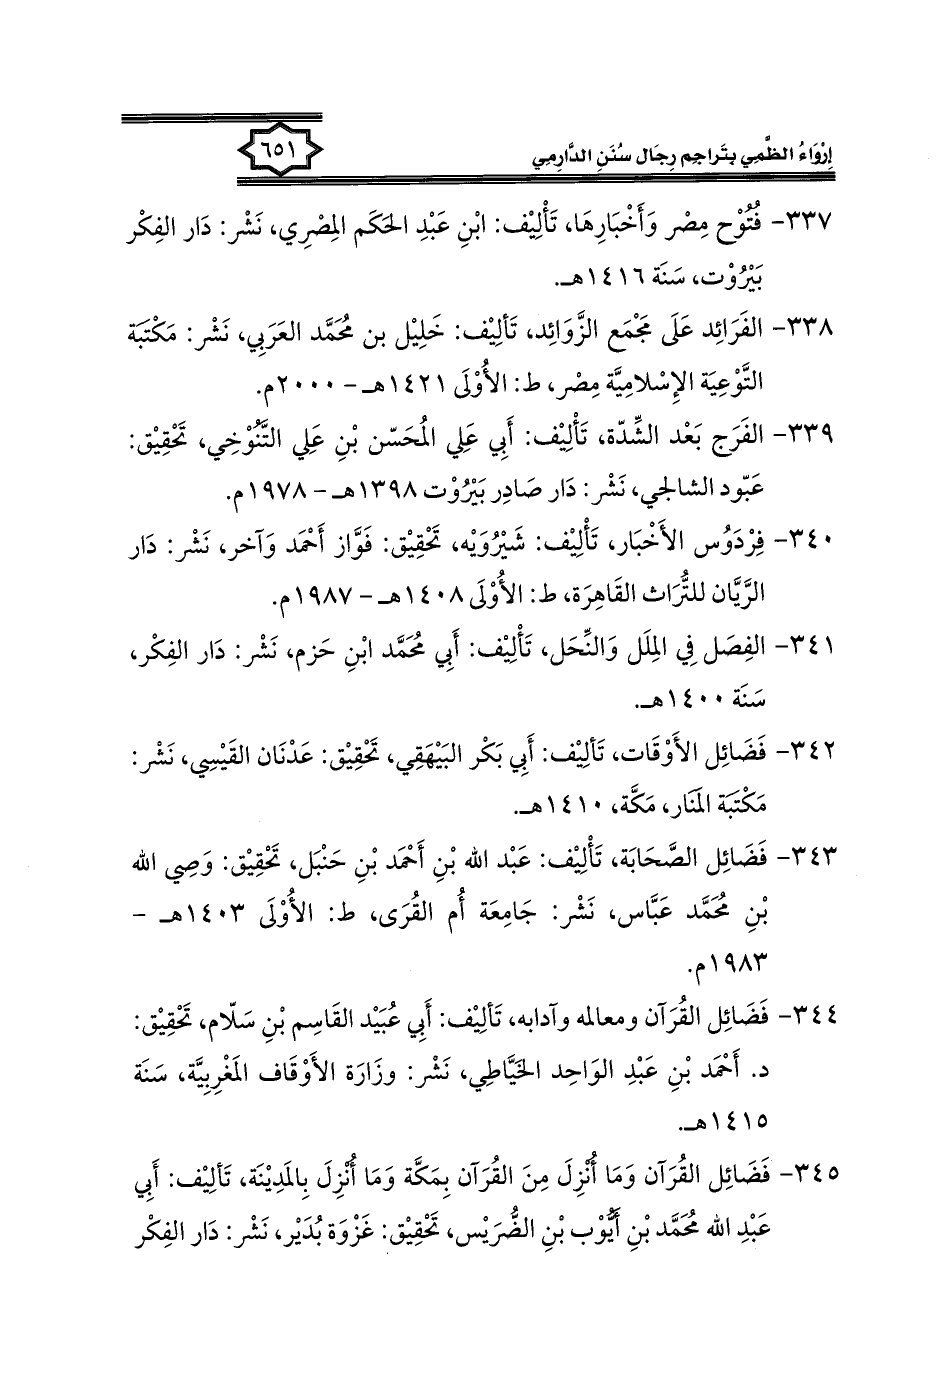 إِرْوَاءُ الظَّمِي بِتَرَاجِم رِجَال سُنَنِ الدَّارِمِي
٦٥١
٣٣٧- فُتُوْح مِصْر وَأَخْبَارِهَا، تَأْلِيْف: ابْنِ عَبْدِ الحَكَم المِصْرِي، نَشْر: دَار الفِكْر
بَيْرُوْت، سَنَة ١٤١٦هـ.
٣٣٨- الفَرَائِد عَلَى مَجْمَع الزَّوَائِد، تَأْلِيْف: خَلِيْل بن مُحَمَّد العَرَبِي، نَشْر: مَكْتَبَة
التَّوْعِيَة الإِسْلامِيَّة مِصْر، ط: الأُوْلَى ١٤٢١هـ - ٢٠٠٠م.
٣٣٩- الفَرَج بَعْد الشِّدَّة، تَأْلِيْف: أَبِي عَلِي المُحَسّن بْنِ عَلِي التَّنُوْخِي، تَحْقِيْق:
عَبّود الشالجي، نَشْر: دَار صَادِر بَيْرُوْت ١٣٩٨هـ - ١٩٧٨م.
٣٤٠- فِرْدَوُس الأَخْبَار، تَأْلِيْف: شَيْرُوَيْه، تَحْقِيْق: فَوَّاز أَحْمَد وَآخر، نَشْر: دَار
الرَّيَّان للتُّرَاث القَاهِرَة، ط: الأُوْلَى ١٤٠٨هـ - ١٩٨٧م.
٣٤١- الفِصَل فِي المِلَل وَالنِّحَل، تَأْلِيْف: أَبِي مُحَمَّد ابْنِ حَزم، نَشْر: دَار الفِكْر،
سَنَة ١٤٠٠هـ.
٣٤٢- فَضَائِل الأَوْقَات، تَألِيْف: أَبِي بَكْر البَيْهَقِي، تَحْقِيْق: عَدْنَان القَيْسِي، نَشْر:
مَكْتَبَة المَنَار، مَكَّة، ١٤١٠هـ.
٣٤٣- فَضَائِل الصَّحَابَة، تَأْلِيْف: عَبْد الله بْنِ أَحْمَد بْنِ حَنْبَل، تَحْقِيْق: وَصِي الله
بْنِ مُحَمَّد عَبَّاس، نَشْر: جَامِعَة أُم القُرَى، ط: الأُوْلَى ١٤٠٣هـ -
١٩٨٣م.
٣٤٤- فَضَائِل القُرَآن ومعالمه وآدابه، تَألِيْف: أَبِي عُبَيْد القَاسِم بْنِ سَلّام، تَحْقِيْق:
د. أَحْمَد بْنِ عَبْدِ الوَاحِد الخَيَّاطِي، نَشْر: وزَارَة الأَوْقَاف المَغْرِبِيَّة، سَنَة
١٤١٥هـ.
٣٤٥- فَضَائِل القُرَآن وَمَا أُنْزِلَ مِنَ القُرَآن بِمَكَّة وَمَا أُنْزِلَ بِالمَدِيْنَة، تَألِيْف: أَبِي
عَبْدِ الله مُحَمَّد بْنِ أَيُّوْب بْنِ الضُّرَيْس، تَحْقِيْق: غَزْوَة بُدَيْر، نَشْر: دَار الفِكْر